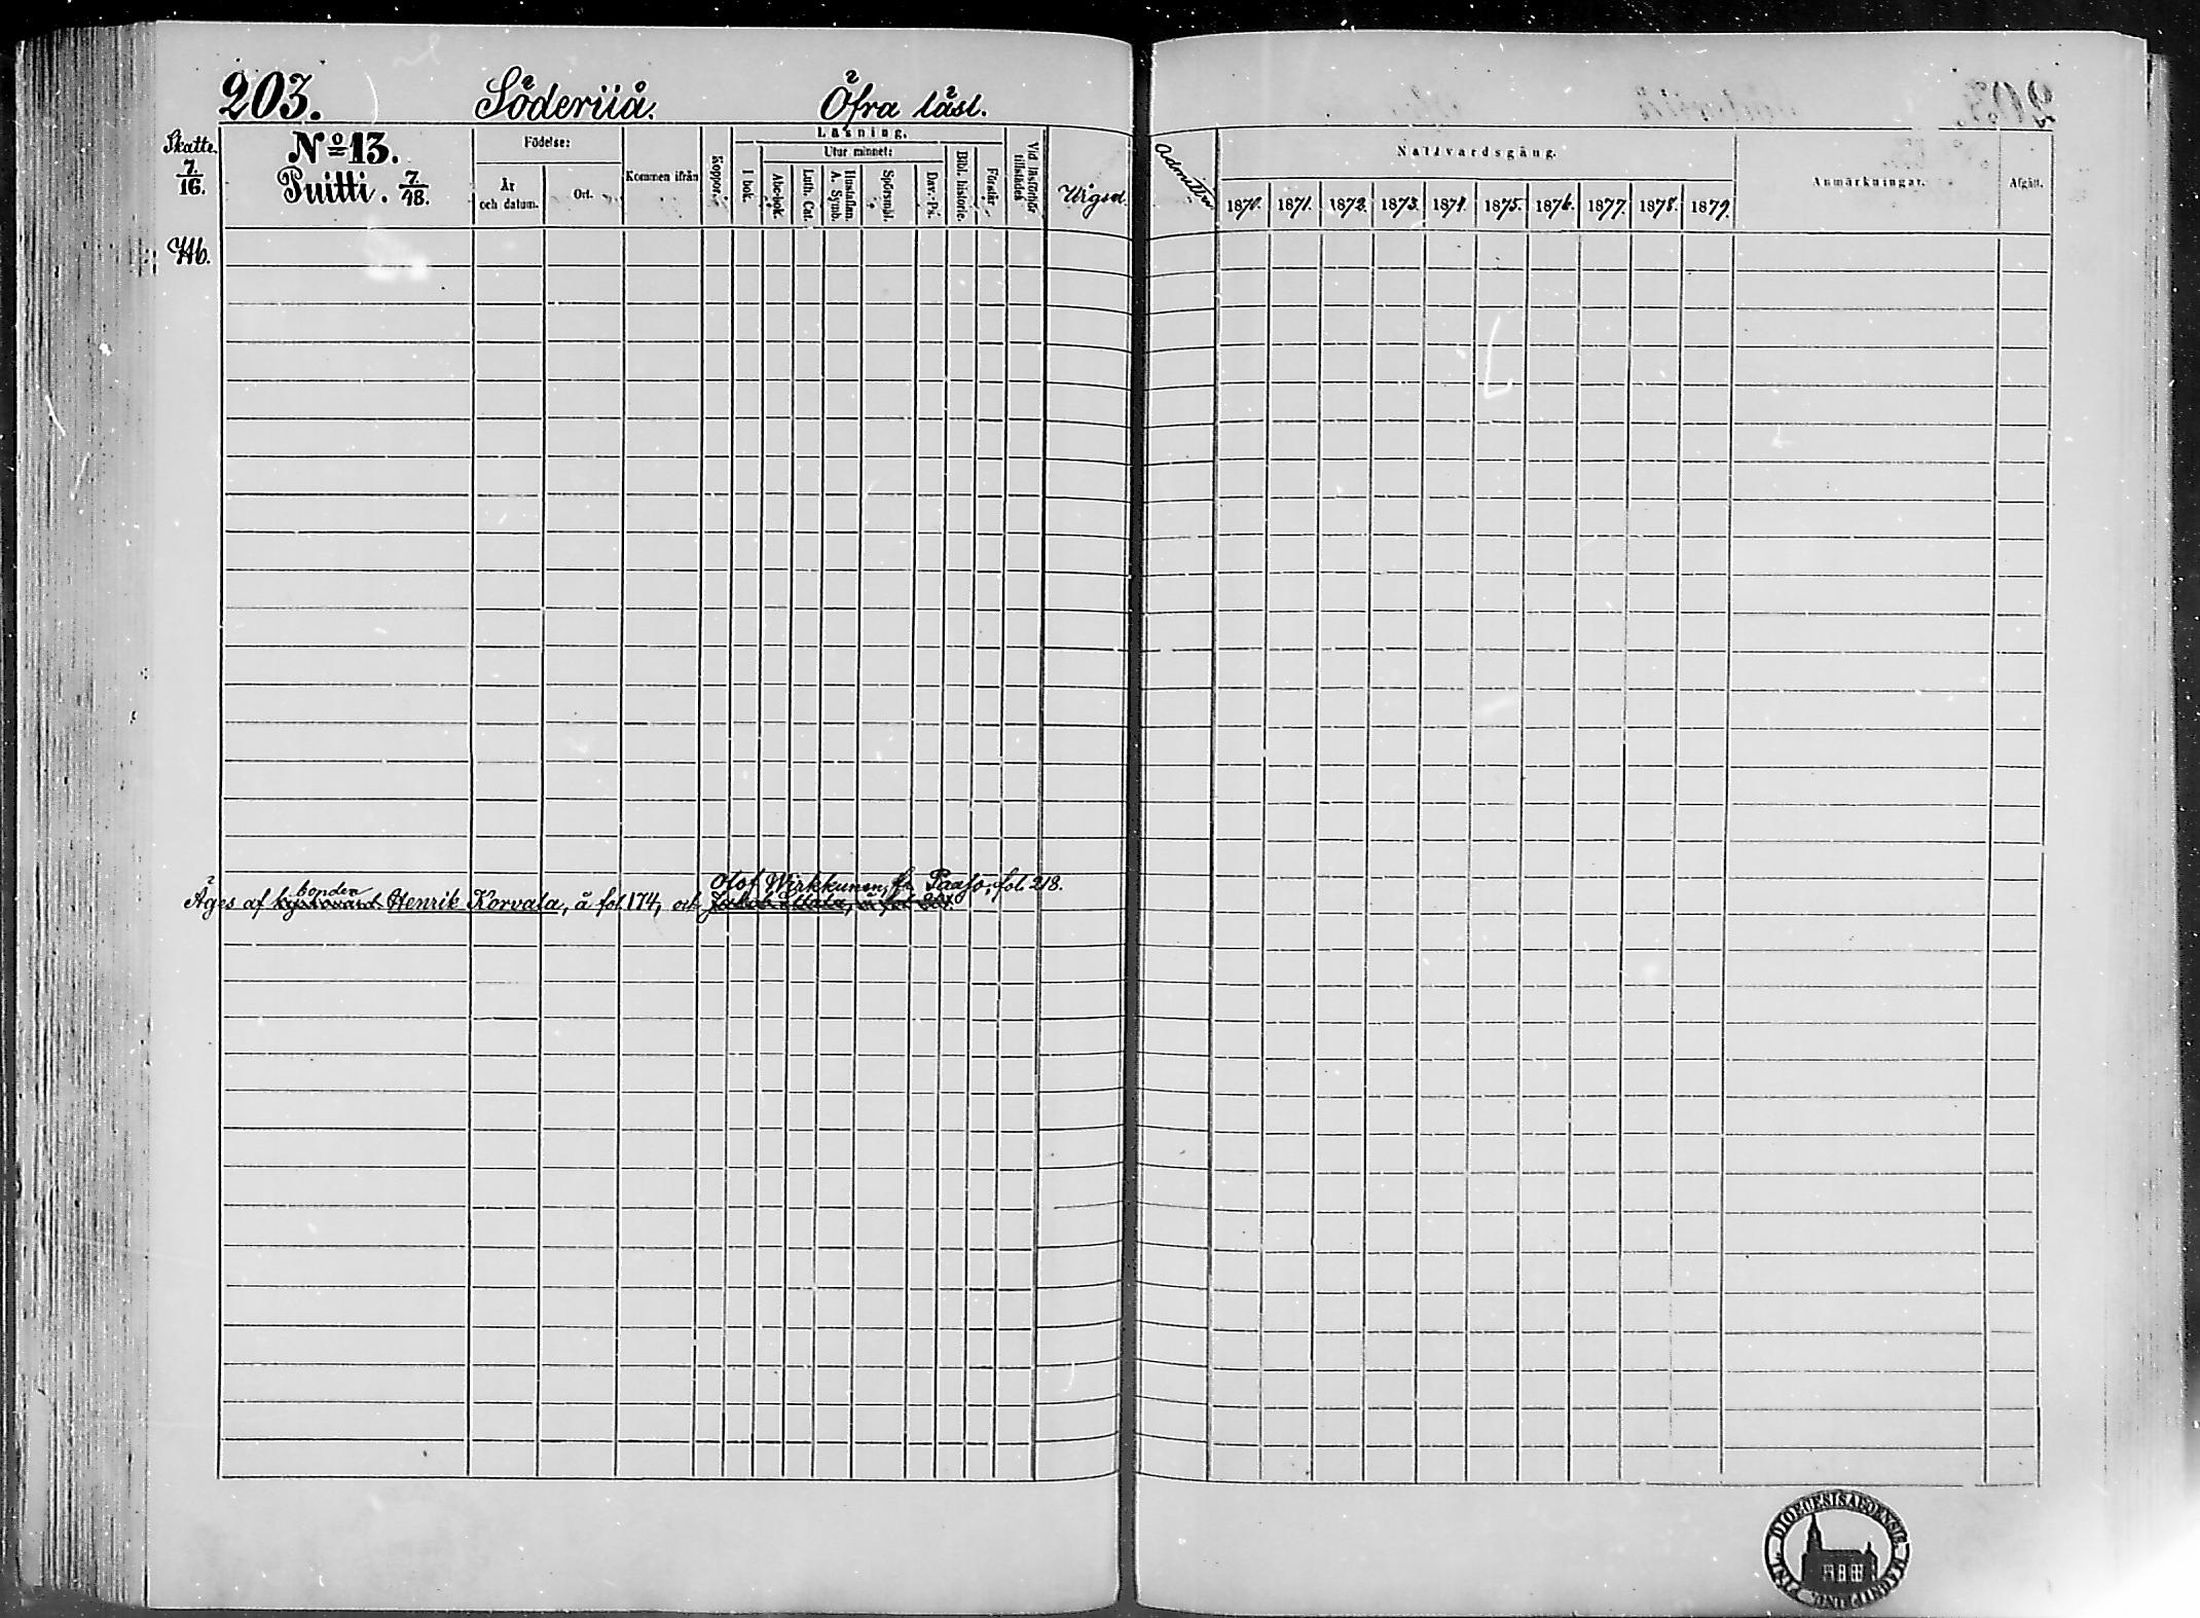 203. Söderiiå. Öfra läsl.
Skatte. 7/16.
No 13.
Puitti. 7/18.
Hb.
Födelse:
År och datum.
Ort.
Kommen ifrån
Koppor.
Läsning.
I bok.
Utur minnet:
Abc-bok.
Luth. Cat.
Hustaflan. A. Symb.
Spörsmål.
Dav. Ps.
Bibl. historie.
Förstår
Vid läsförhör tillstädes
Admitter.
Nattvardsgång.
1870. 1871. 1872. 1873. 1874. 1875. 1876. 1877. 1878. 1879.
Anmärkningar.
Afgått.
bonden Olof Wirkkunen, fr Paaso, fol. 218.
Äges af kyrkovärd Henrik Korvala, å fol. 174, och Jakob
DIOECESIS ABOENSIS IN MAGNI PRINC. FINL.